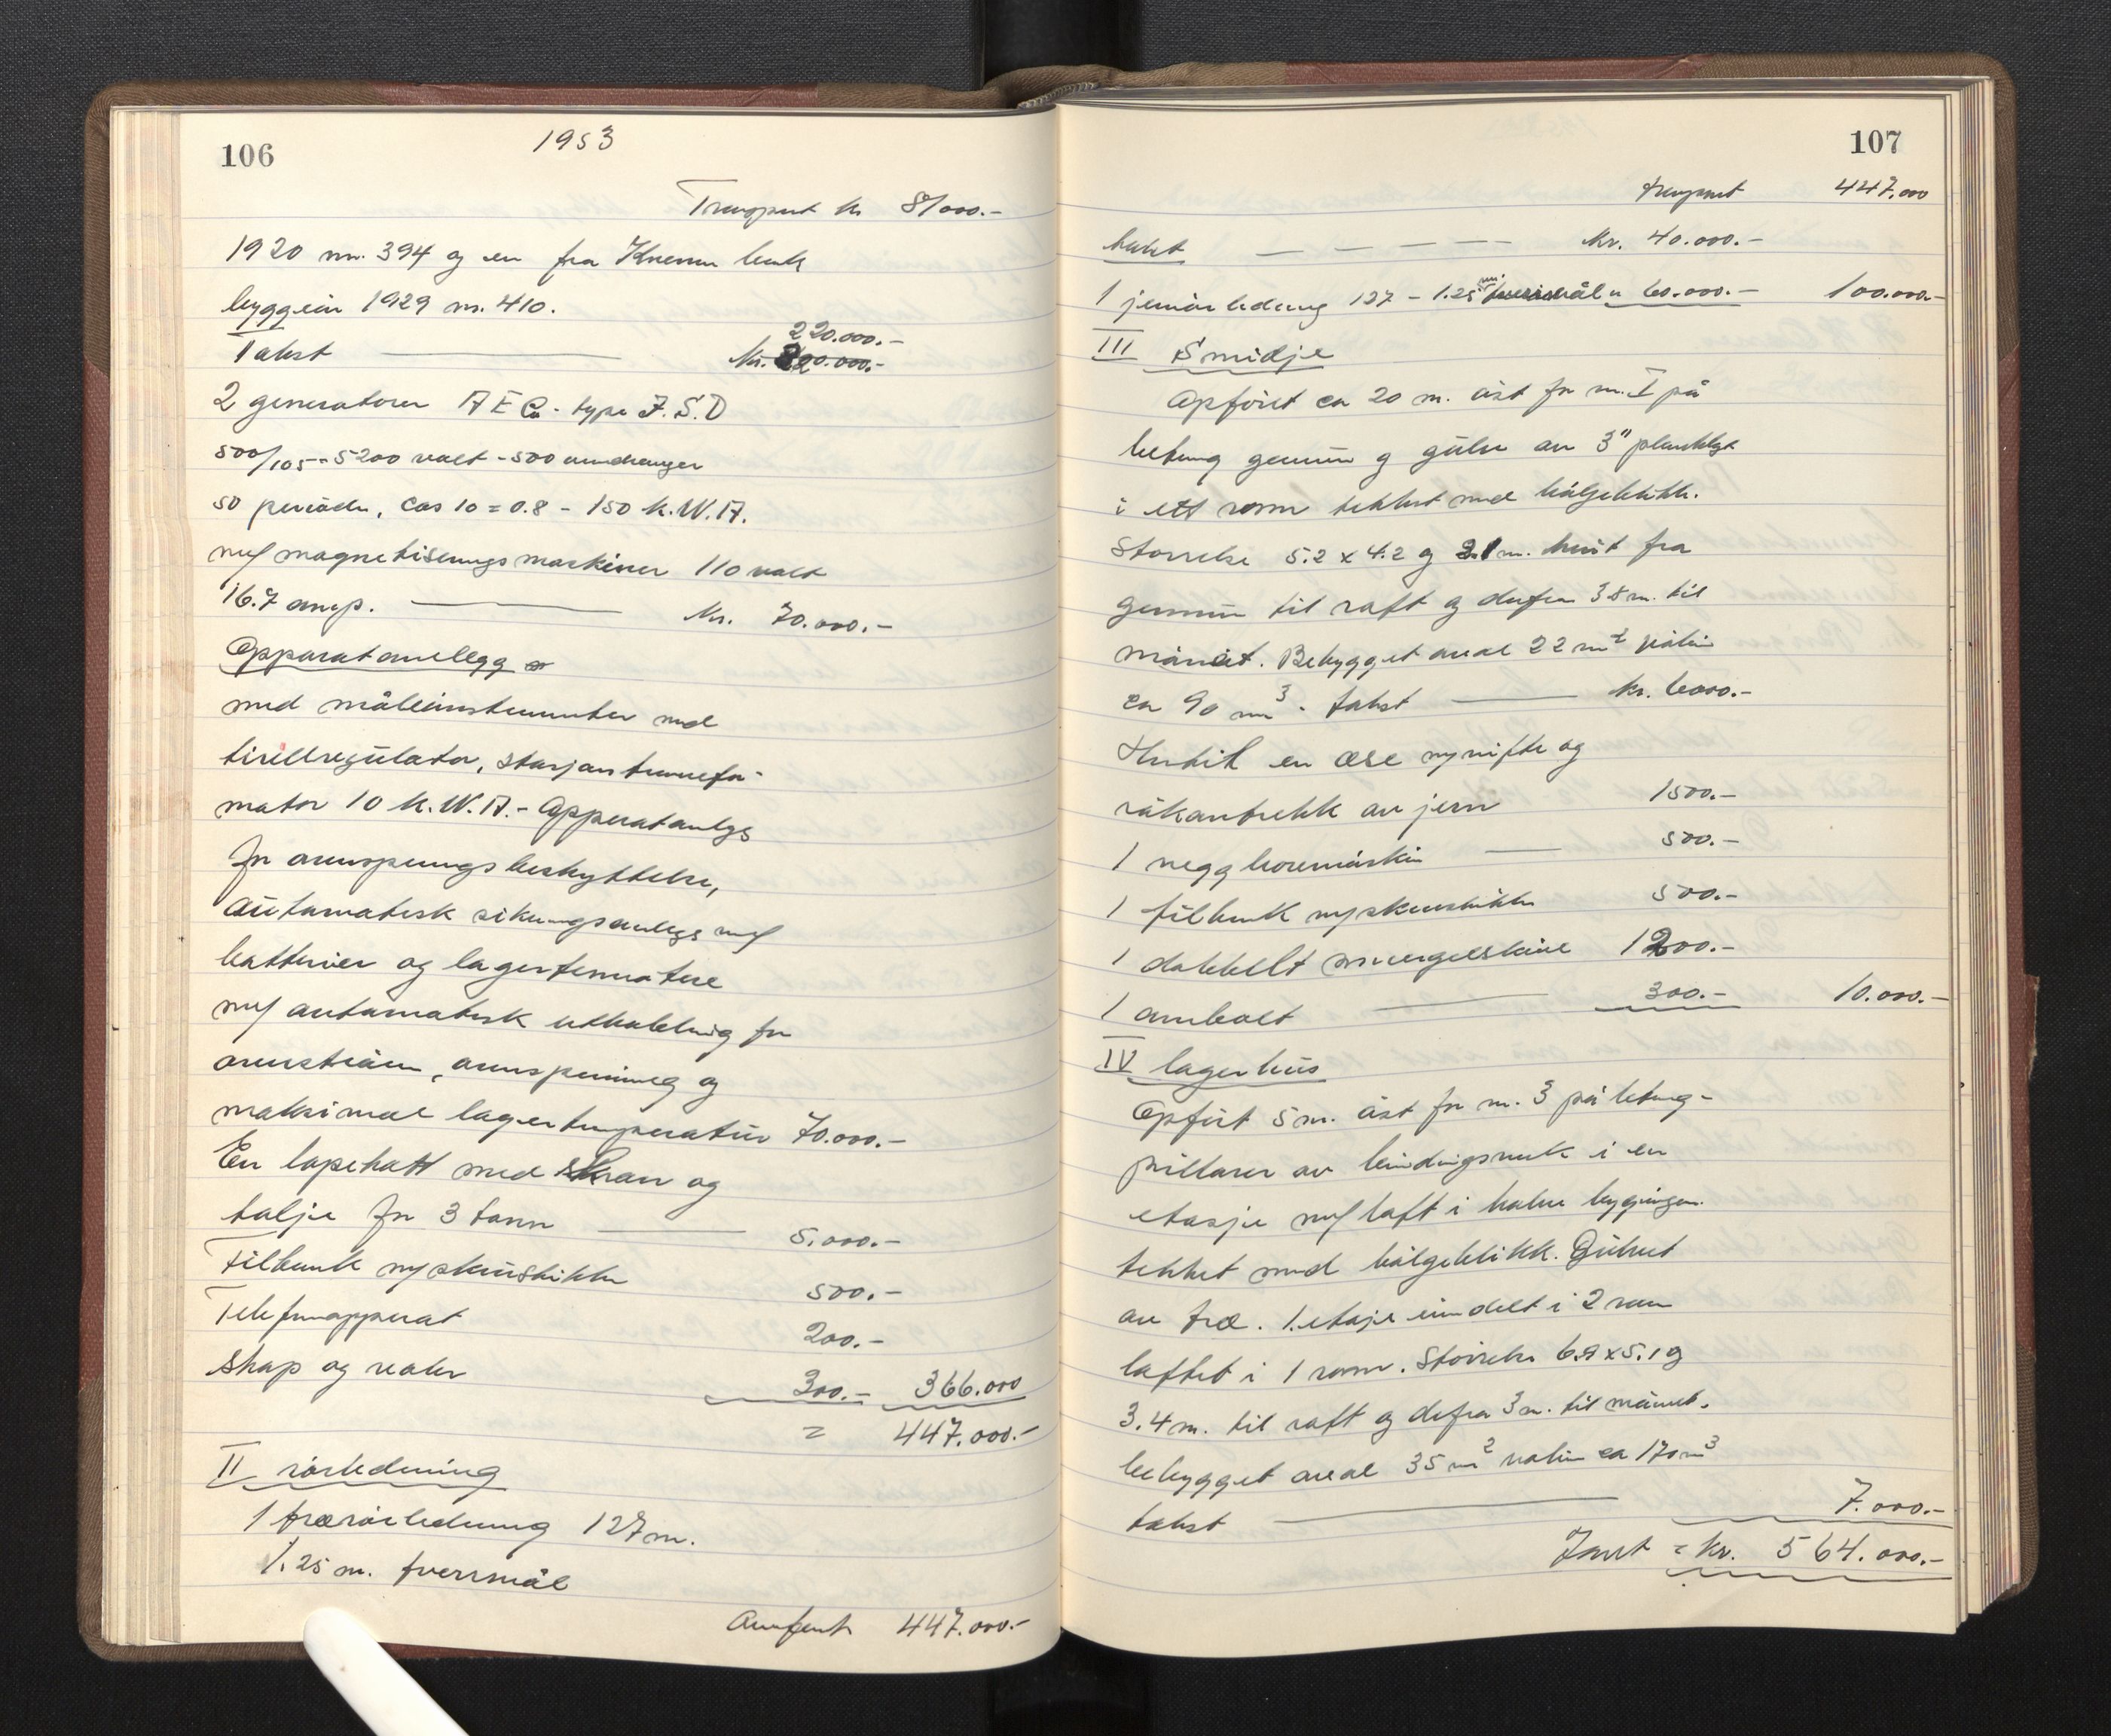 106
1953
Transport kr 81000.-
1920 nr. 394 og en fra Kværner bruk
byggeår 1929 nr. 410.
Takst 220.000.-
Kr. 220.000.-
2 generatorer A E Co - type F.S.D
500/105 - 5200 volt - 500 omdreninger
50 perioder, Cos 10 = 0.8 - 150 K.W.A.
m/ magnetiserings maskiner 110 volt
16.7 amp. Kr. 70.000.-
Apparatanlegg
med måleinstrumenter med
tirillregulator, stasjonstransfor-
mator 10 K.W.A. - Apparatanlegg
for overspennings beskyttelse,
automatisk sikringsanlegg m/
batterier og lagertermostere
m/ automatisk utkobling for
overstrøm, overspenning og
maksimal lagertemperatur 70.000.-
En løpekatt med kran og
talje for 3 tonn 5.000.-
Filbenk m/ skrustikke 500.-
Telefonapparat 200.-
Skap og reoler 300.- 366.000
= 447.000.-
II rørledning
1 trærørledning 127 m.
1.25 m. tverrmål
Overført 447.000.-
107
Transport 447.000
takst Kr. 40.000.-
1 jernrørledning 127 - 1.25 m tverrmål " 60.000.- 100.000.-
III Smidje
Opført ca 20 m. øst for nr. I på
betong grunnmur og gulv av 3" plankelegg
i ett rom tekket med bølgeblikk.
Størrelse 5.2 x 4.2 og 2.1 m. høit fra
grunnmur til raft og derfra 3.8 m. til
mønet. Bebygget areal 22 m² volum
ca 90 m³. takst kr. 6000.-
Hertil en æse m/ vifte og
røkavtrekk av jern 1500.-
1 vegg boremaskin 500.-
1 filbenk m/ skrustikke 500.-
1 dobbelt smergelskive 1200.-
1 ambolt 300.- 10.000.-
IV lagerhus
Opført 5 m. øst for nr. 3 på betong-
pillarer av bindingsverk i en
etasje m/ loft i halve bygningen.
tekket med bølgeblikk. Gulvet
av træ. 1. etasje inndelt i 2 rom
loftet i 1 rom. Størrelse 6.9 x 5.1 og
3.4 m. til raft og derfra 3 m. til mønet.
bebygget areal 35 m² volum ca 170 m³
takst 7.000.-
Tomt = kr. 564.000.-